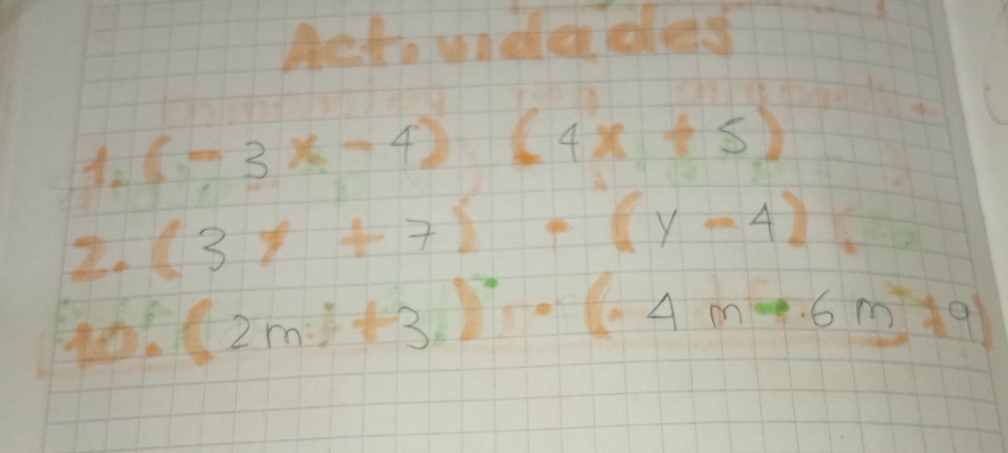 Actividades
1. (-3x-4) (4x+5)
2. (3y+7) · (y-4)
10. (2m+3) · (4m-6m+9)